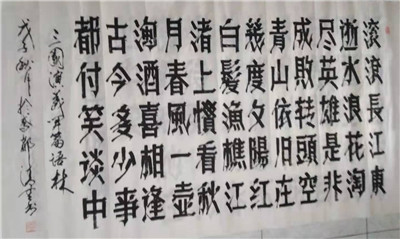 滚滚長江東
逝水浪花淘
尽英雄是非
成敗转頭空
青山依旧在
幾度夕陽红
白髮漁樵江
渚上慣看秋
月春風一壺
濁酒喜相逢
古今多少事
都付笑谈中
三國演義开篇语
戊子秋月於